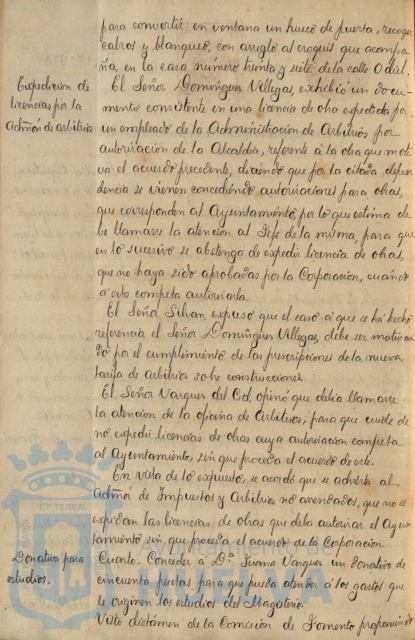 para convertir en ventana un hueco de puerta, recoger
calzos y blanqueo, con arreglo al croquis que acompa
ña, en la casa número treinta y siete de la calle Odiel.
Expedición de
licencias por la
Admón de Arbitrios
El Señor Domínguez Villegas, exhibió un docu
mento consistente en una licencia de obra expedida por
un empleado de la Administración de Arbitrios por
autorización de la Alcaldía, referente á la obra que moti
va el acuerdo precedente, diciendo que por la citada depen
dencia se vienen concediendo autorizaciones para obras,
que corresponden al Ayuntamiento, por lo que estima de
be llamarse la atención al Jefe de la misma, para que
en lo sucesivo se abstenga de expedir licencia de obras,
que no haya sido aprobadas por la Corporación, cuando
á esta competa autorizarla.
El Señor Silvan, expuso que el caso á que se há hecho
referencia el Señor Domínguez Villegas, debe ser motiva
do por el cumplimiento de las prescripciones de la nueva
tarifa de Arbitrios sobre construcciones.
El Señor Vazquez del Cid, opinó que debía llamarse
la atención de la oficina de Arbitrios, para que cuide de
no expedir licencias de obras cuya autorización competa
al Ayuntamiento, sin que proceda el acuerdo de este.
En vista de lo expuesto, se acordó que se advierta al
Admor de Impuestos y Arbitrios no arrendados, que no se
expidan las licencias de obras que deba autorizar el Ayun
tamiento sin que proceda el acuerdo de la Corporación.
Donativo para
estudios.
Cuarto. Conceder á Dª Juana Vazquez un donativo de
cincuenta pesetas para que pueda atender á los gastos que
le originen los estudios del Magisterio.
Visto dictámen de la Comisión de Fomento proponiendo